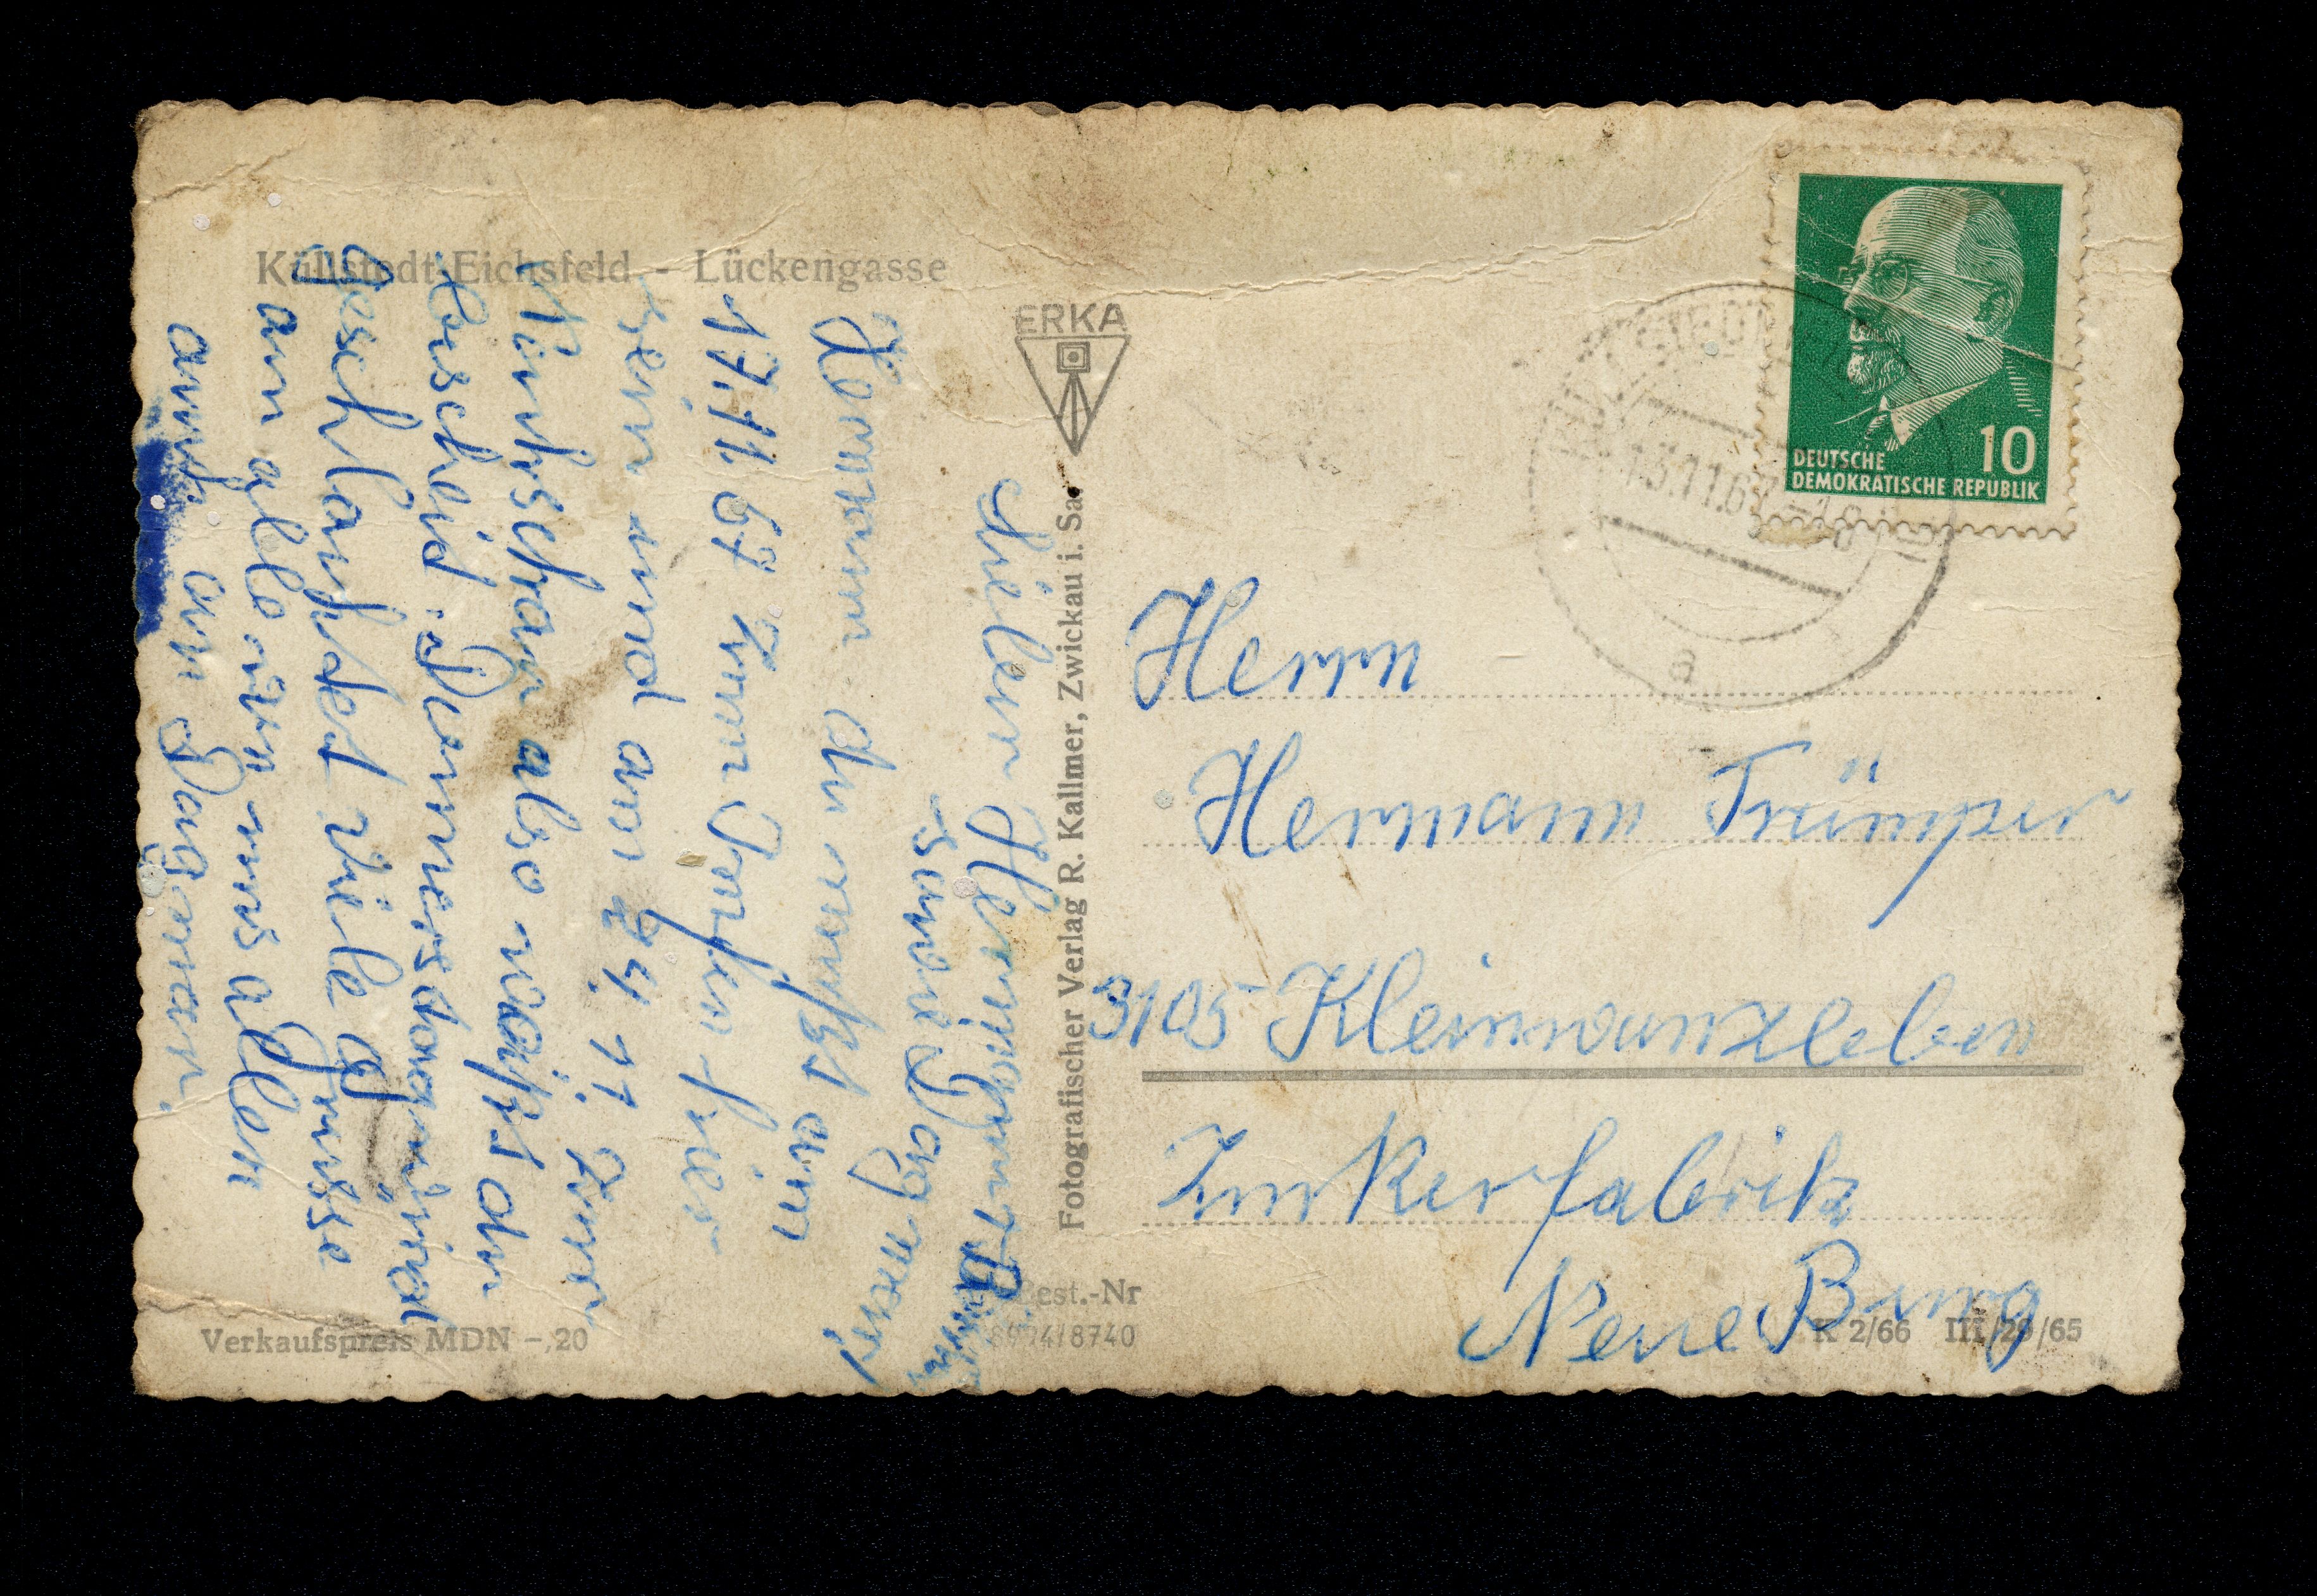 Küllstedt-Eichsfeld - Lückengasse
ERKA
Fotografischer Verlag R. Kallmer, Zwickau i. Sa.
DEUTSCHE
DEMOKRATISCHE REPUBLIK
10
13.11.67
a
Lieber Hermann
und Dagmar
Hermann du mußt am
17.11 67 zum Impfen hier
sein und am 24. 11. zur
Nachschau also weißt du
bescheid. Donnerstag wird
geschlachtet viele Grüße
an alle von uns allen
auch an Dagmar.
Herrn
Hermann Trümper
3105 Kleinwanzleben
Zuckerfabrik
Neue Burg
Verkaufspreis MDN -,20
Best.-Nr
8740
K 2/66 III/29/65